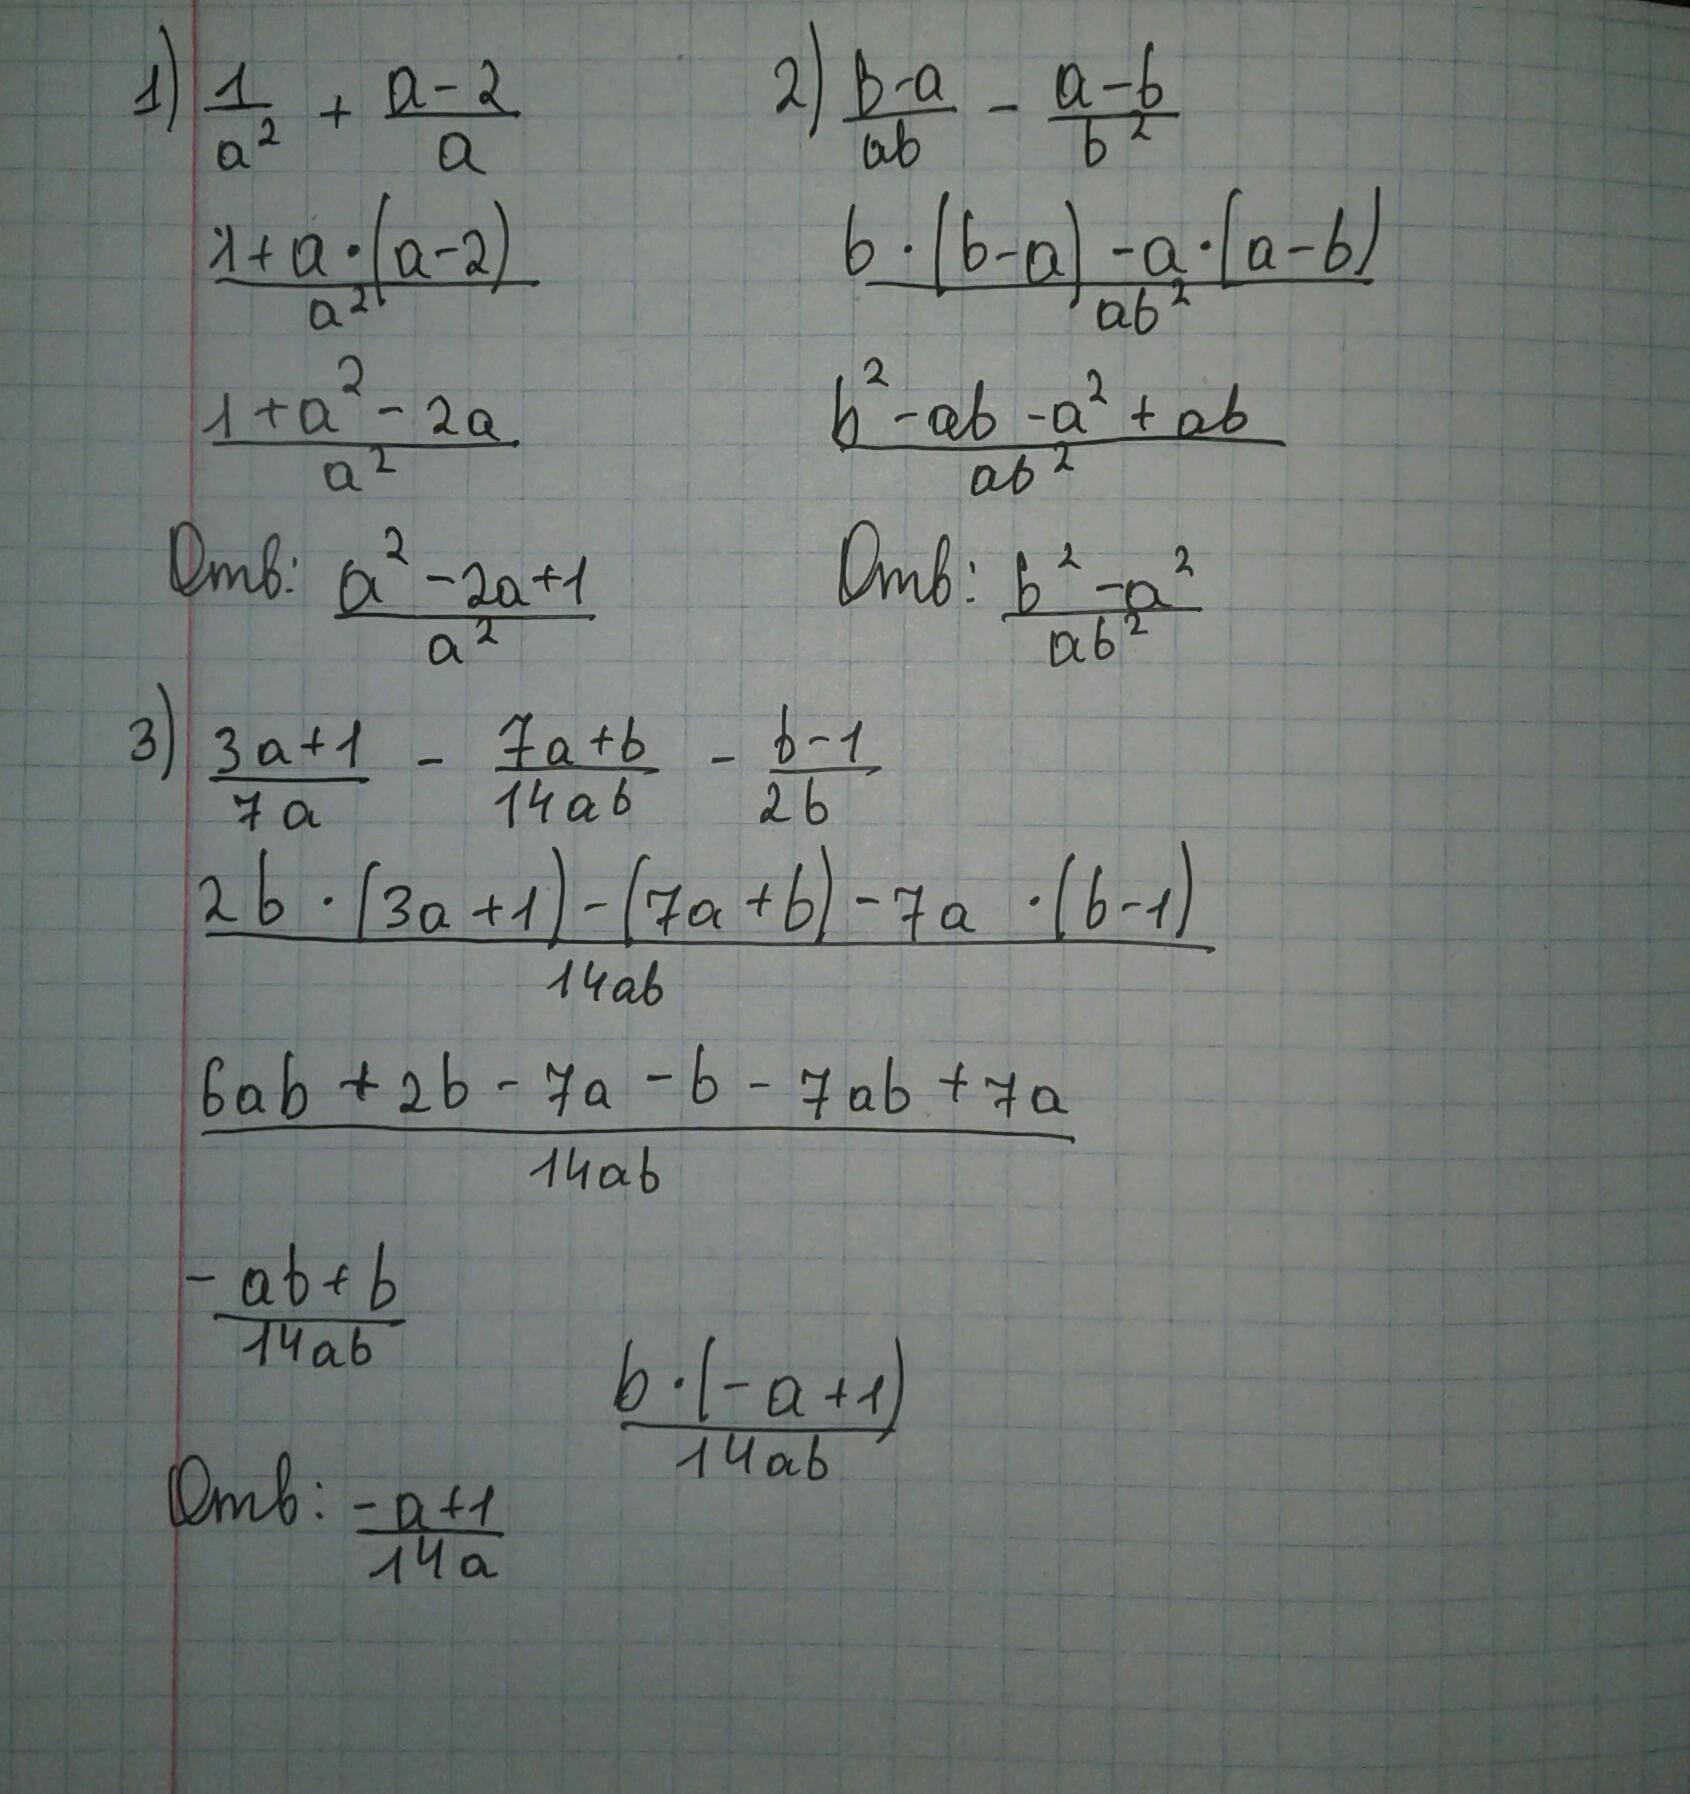 1) 1/a² + (a-2)/a
(1+a·(a-2))/a²
(1+a²-2a)/a²
Отв: (a²-2a+1)/a²
2) (b-a)/ab - (a-b)/b²
(b·(b-a)-a·(a-b))/ab²
(b²-ab-a²+ab)/ab²
Отв: (b²-a²)/ab²
3) (3a+1)/7a - (7a+b)/14ab - (b-1)/2b
(2b·(3a+1)-(7a+b)-7a·(b-1))/14ab
(6ab+2b-7a-b-7ab+7a)/14ab
(-ab+b)/14ab
(b·(-a+1))/14ab
Отв: (-a+1)/14a